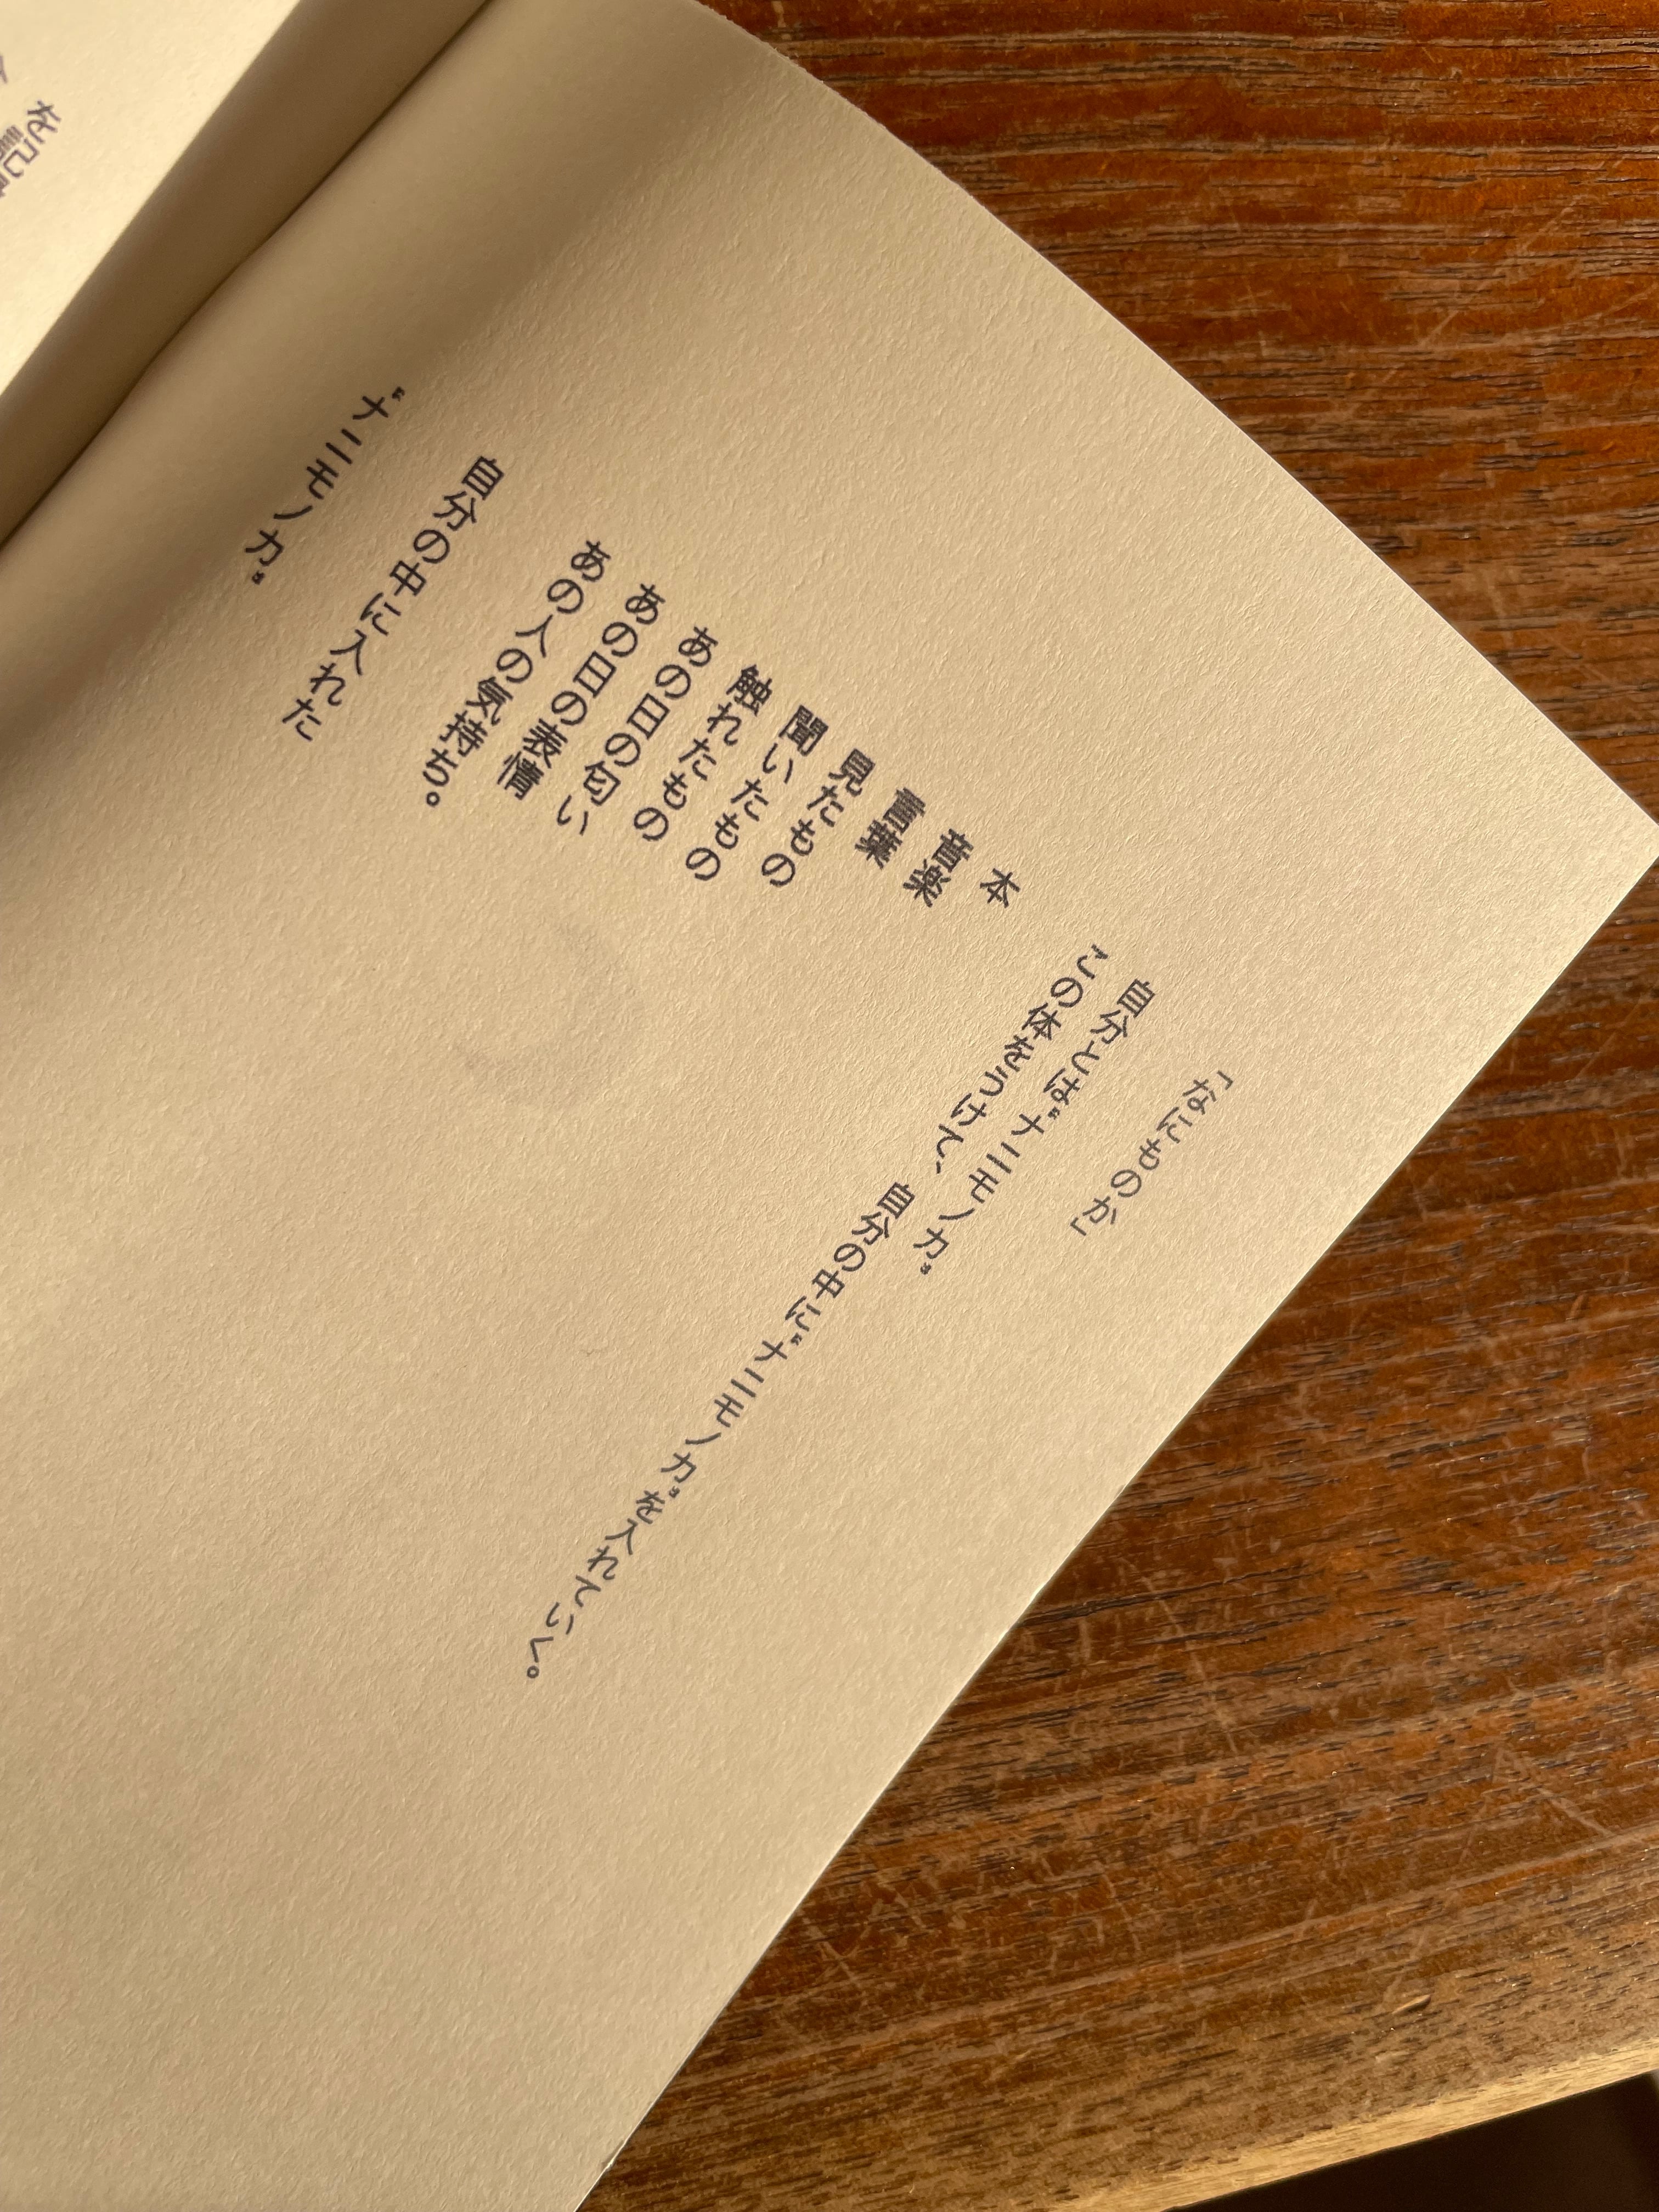 「なにものか」
自分とは〝ナニモノカ〟
この体をうけて、自分の中に〝ナニモノカ〟を入れていく。
本
音楽
言葉
見たもの
聞いたもの
触れたもの
あの日の匂い
あの日の表情
あの人の気持ち。
自分の中に入れた
〝ナニモノカ〟